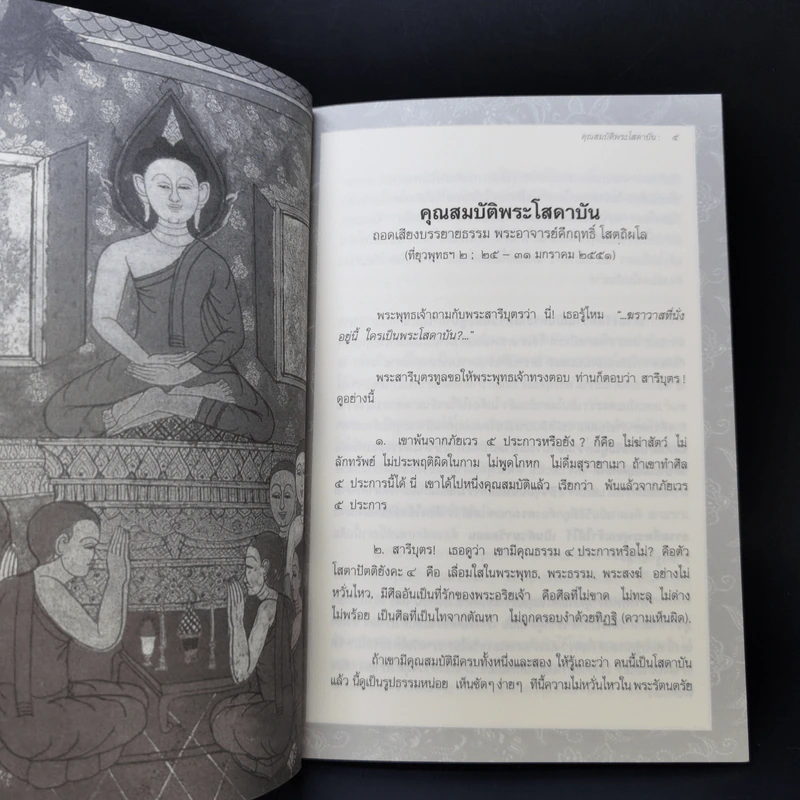 คุณสมบัติพระโสดาบัน : ๕
คุณสมบัติพระโสดาบัน
ถอดเสียงบรรยายธรรม พระอาจารย์คึกฤทธิ์ โสตฺถิผโล
(ที่ยุวพุทธฯ ๒ ; ๒๕ – ๓๑ มกราคม ๒๕๕๑)
พระพุทธเจ้าถามกับพระสารีบุตรว่า นี่! เธอรู้ไหม “...ฆราวาสที่นั่ง
อยู่นี้ ใครเป็นพระโสดาบัน?...”
พระสารีบุตรทูลขอให้พระพุทธเจ้าทรงตอบ ท่านก็ตอบว่า สารีบุตร!
ดูอย่างนี้
๑. เขาพ้นจากภัยเวร ๕ ประการหรือยัง ? ก็คือ ไม่ฆ่าสัตว์ ไม่
ลักทรัพย์ ไม่ประพฤติผิดในกาม ไม่พูดโกหก ไม่ดื่มสุรายาเมา ถ้าเขาทำศีล
๕ ประการนี้ได้ นี่ เขาได้ไปหนึ่งคุณสมบัติแล้ว เรียกว่า พ้นแล้วจากภัยเวร
๕ ประการ
๒. สารีบุตร! เธอดูว่า เขามีคุณธรรม ๔ ประการหรือไม่? คือตัว
โสตาปัตติยังคะ ๔ คือ เลื่อมใสในพระพุทธ, พระธรรม, พระสงฆ์ อย่างไม่
หวั่นไหว, มีศีลอันเป็นที่รักของพระอริยเจ้า คือศีลที่ไม่ขาด ไม่ทะลุ ไม่ด่าง
ไม่พร้อย เป็นศีลที่เป็นไทจากตัณหา ไม่ถูกครอบงำด้วยทิฏฐิ (ความเห็นผิด).
ถ้าเขามีคุณสมบัติมีครบทั้งหนึ่งและสอง ให้รู้เถอะว่า คนนี้เป็นโสดาบัน
แล้ว นี้ดูเป็นรูปธรรมหน่อย เห็นชัดๆ ง่ายๆ ทีนี้ความไม่หวั่นไหวใน พระรัตนตรัย